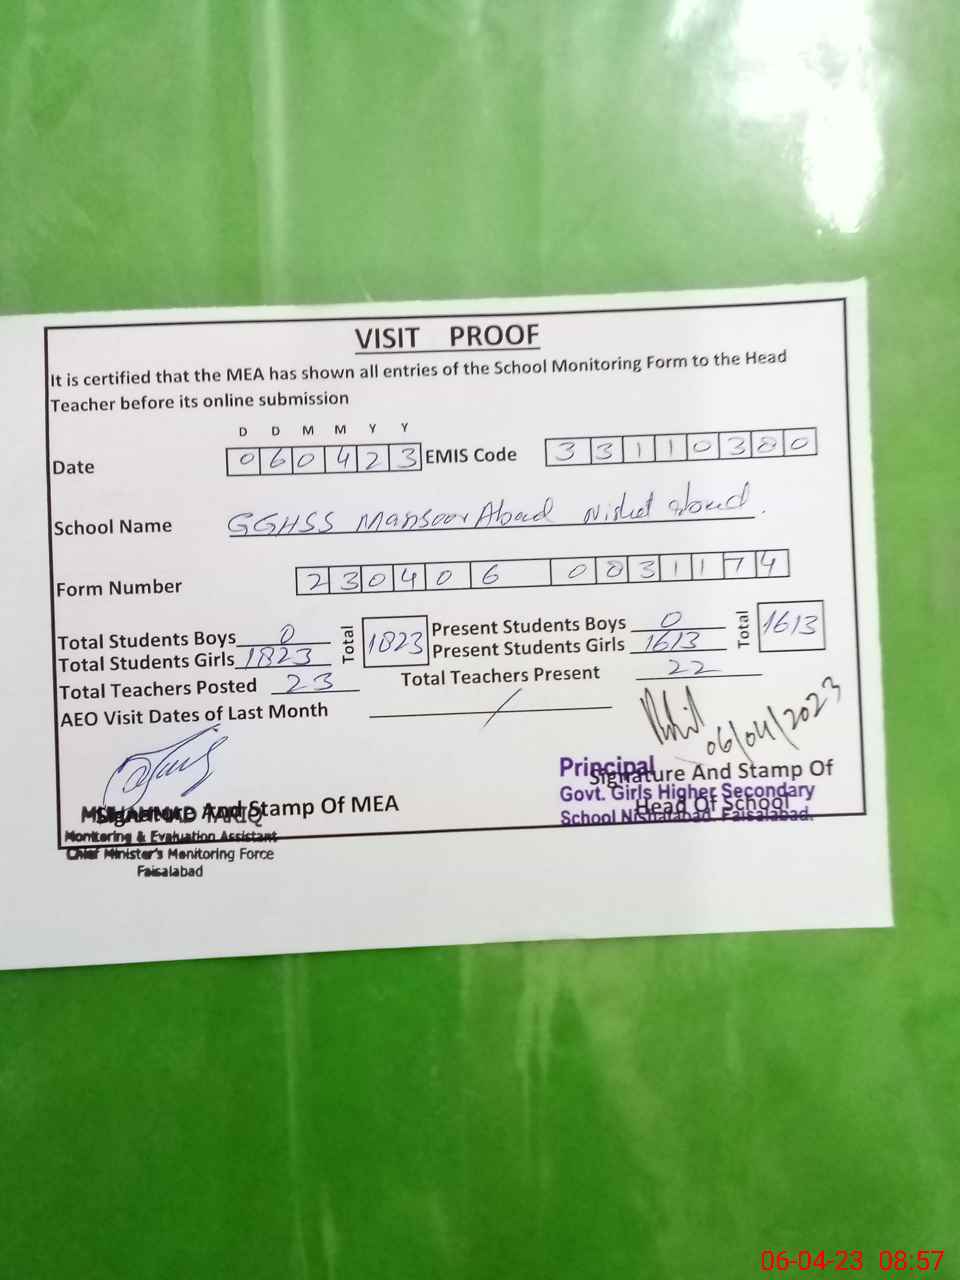 VISIT PROOF
It is certified that the MEA has shown all entries of the School Monitoring Form to the Head
Teacher before its online submission
D D M M Y Y
Date 0 6 0 4 2 3 EMIS Code 3 3 1 1 0 3 8 0
School Name GGHSS Mansoor Abad Nishat abad.
Form Number 2 3 0 4 0 6 0 8 3 1 1 7 4
Total Students Boys 0 Total 1823 Present Students Boys 0 Total 1613
Total Students Girls 1823 Present Students Girls 1613
Total Teachers Posted 23 Total Teachers Present 22
AEO Visit Dates of Last Month /
06/04/2023
Principal
Signature And Stamp Of
Govt. Girls Higher Secondary
Head Of School
School Nishatabad. Faisalabad.
Signature And Stamp Of MEA
MUHAMMAD TARIQ
Monitoring & Evaluation Assistant
Chief Minister's Monitoring Force
Faisalabad
06-04-23 08:57